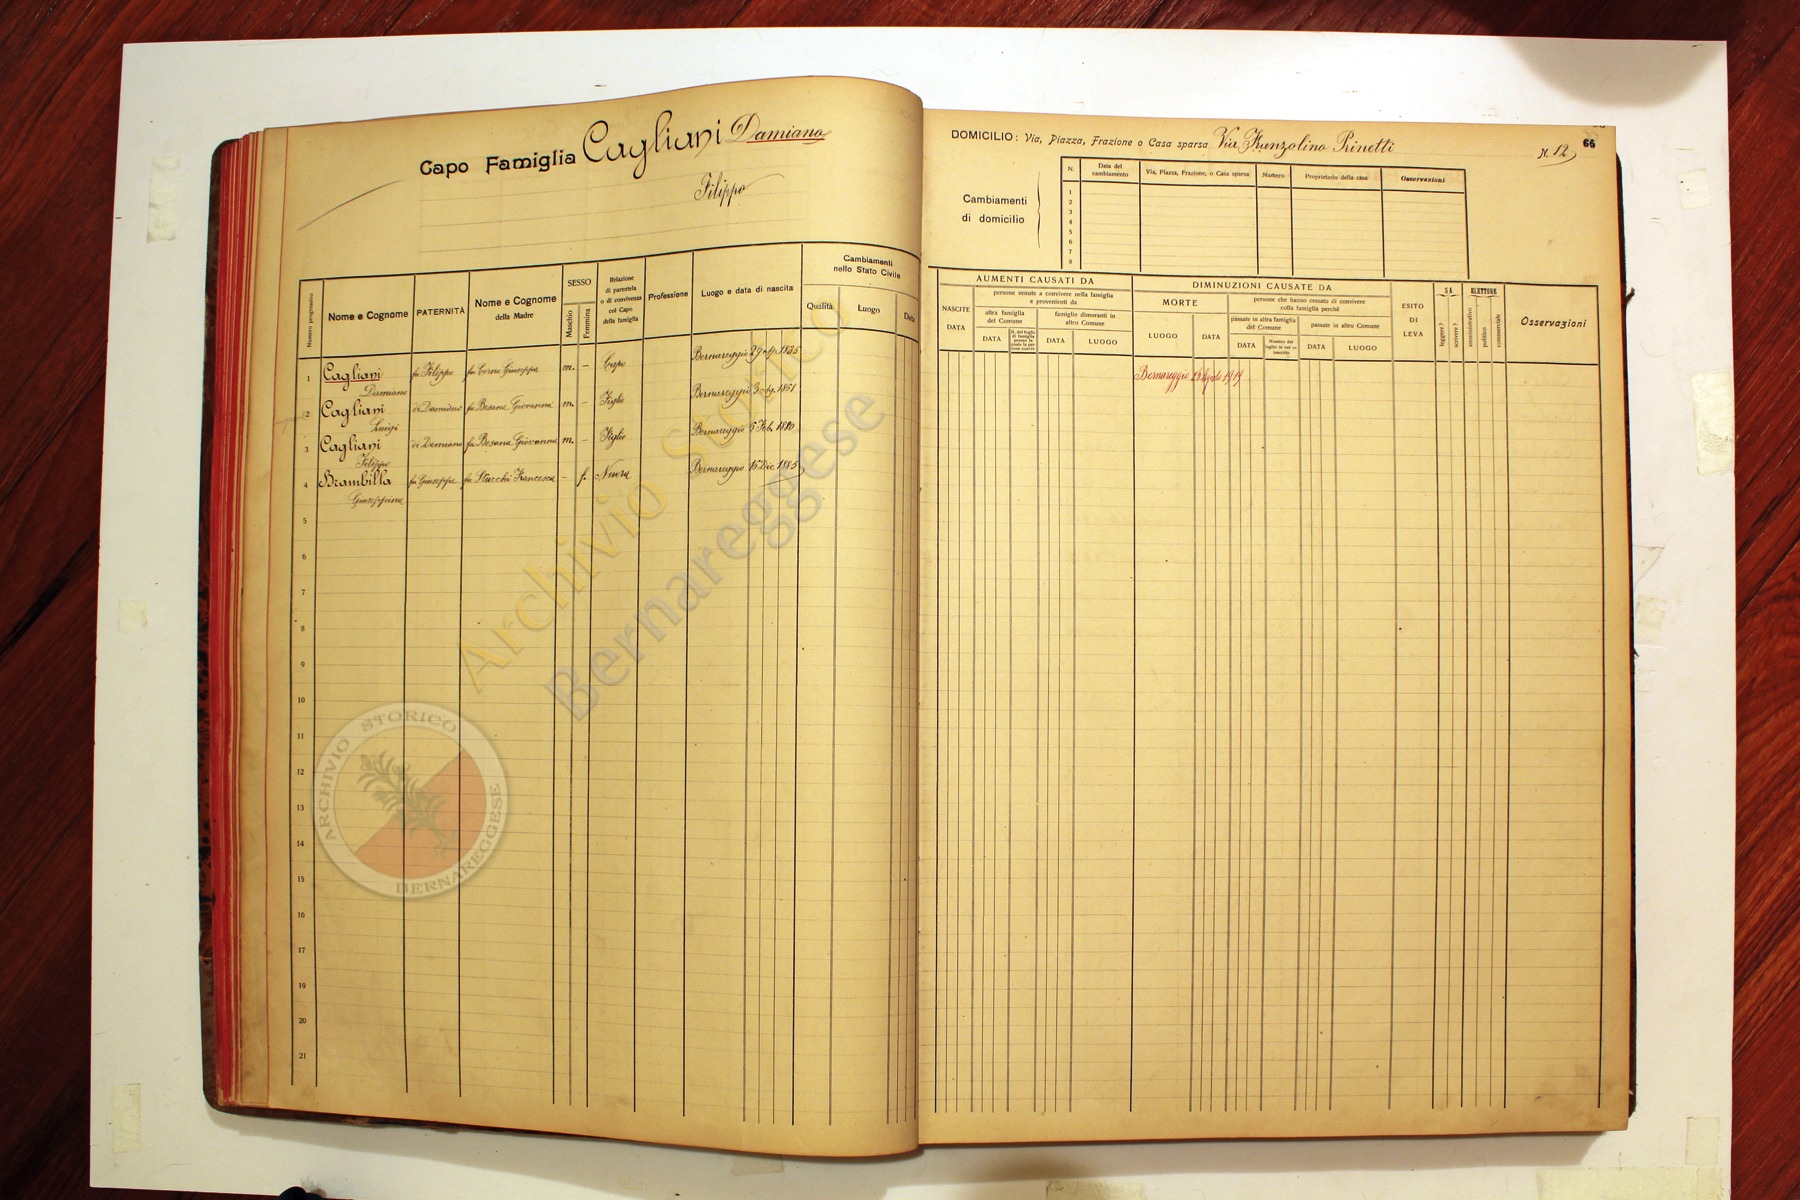 Capo Famiglia Cagliani Damiano
Filippo
Numero progressivo
Nome e Cognome
PATERNITÀ
Nome e Cognome
della Madre
SESSO
Maschio
Femmina
Relazione
di parentela
o di convivenza
col Capo
della famiglia
Professione
Luogo e data di nascita
Cambiamenti
nello Stato Civile
Qualità
Luogo
Data
1 Cagliani fu Filippo fu Giuseppa m. – Capo Bernareggio 29 1835
Damiano
2 Cagliani di Damiano fu Besana Giovanna m. – Figlio Bernareggio 3
Luigi
3 Cagliani di Damiano fu Besana Giovanna m. – Figlio Bernareggio 5 Feb. 1880
Filippo
4 Brambilla fu Giuseppe fu Stucchi Francesca – f. Nuora Bernareggio 15 Dic 1885
Giuseppina
5
6
7
8
9
10
11
12
13
14
15
16
17
18
19
20
21
DOMICILIO: Via, Piazza, Frazione o Casa sparsa Via Prinetti N. 12
66
Cambiamenti
di domicilio
N.
Data del
cambiamento
Via, Piazza, Frazione, o Casa sparsa
Numero
Proprietario della casa
Osservazioni
1
2
3
4
5
6
7
8
AUMENTI CAUSATI DA
NASCITE
DATA
persone venute a convivere nella famiglia
e provenienti da
altra famiglia
del Comune
DATA
N. del foglio
di famiglia
presso la
quale la per-
sona convive
famiglie dimoranti in
altro Comune
DATA
LUOGO
DIMINUZIONI CAUSATE DA
MORTE
LUOGO
DATA
persone che hanno cessato di convivere
colla famiglia perchè
passate in altra famiglia
del Comune
DATA
Numero del
foglio in cui va
inscritto
passate in altro Comune
DATA
LUOGO
ESITO
DI
LEVA
SA
leggere?
scrivere?
ELETTORE
amministrativo
politico
commerciale
Osservazioni
Bernareggio 28 1919
ARCHIVIO STORICO
BERNAREGGESE
Archivio storico
Bernareggese